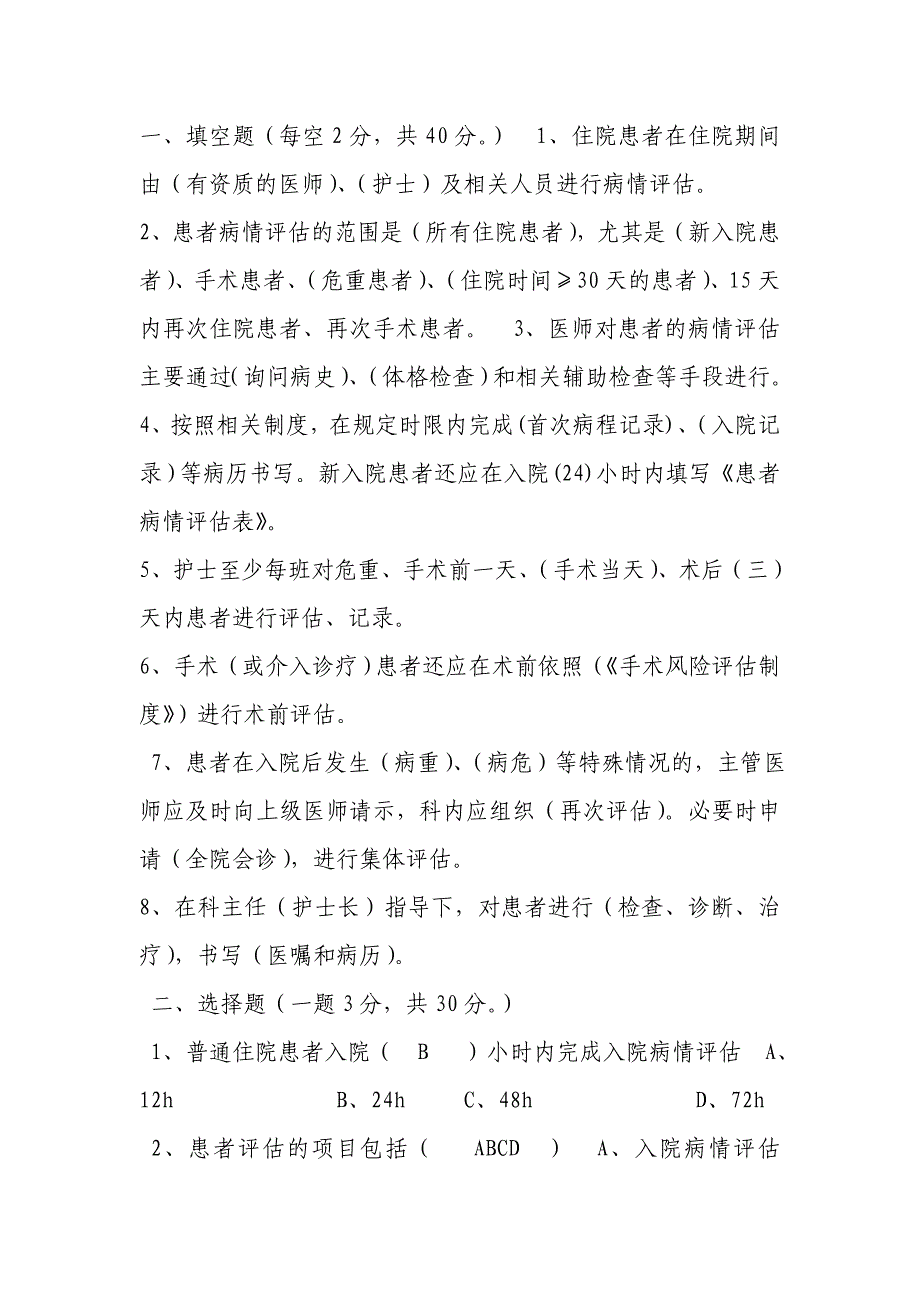 一、填空题（每空2分，共40分。） 1、住院患者在住院期间
由（有资质的医师）、（护士）及相关人员进行病情评估。
2、患者病情评估的范围是（所有住院患者），尤其是（新入院患
者）、手术患者、（危重患者）、（住院时间≥30天的患者）、15天
内再次住院患者、再次手术患者。 3、医师对患者的病情评估
主要通过(询问病史)、(体格检查)和相关辅助检查等手段进行。
4、按照相关制度，在规定时限内完成(首次病程记录)、(入院记
录)等病历书写。新入院患者还应在入院(24)小时内填写《患者
病情评估表》。
5、护士至少每班对危重、手术前一天、（手术当天）、术后（三）
天内患者进行评估、记录。
6、手术（或介入诊疗）患者还应在术前依照（《手术风险评估制
度》）进行术前评估。
7、患者在入院后发生（病重）、（病危）等特殊情况的，主管医
师应及时向上级医师请示，科内应组织（再次评估）。必要时申
请（全院会诊），进行集体评估。
8、在科主任（护士长）指导下，对患者进行（检查、诊断、治
疗），书写（医嘱和病历）。
二、选择题（一题3分，共30分。）
1、普通住院患者入院（ B ）小时内完成入院病情评估 A、
12h B、24h C、48h D、72h
2、患者评估的项目包括（ ABCD ） A、入院病情评估